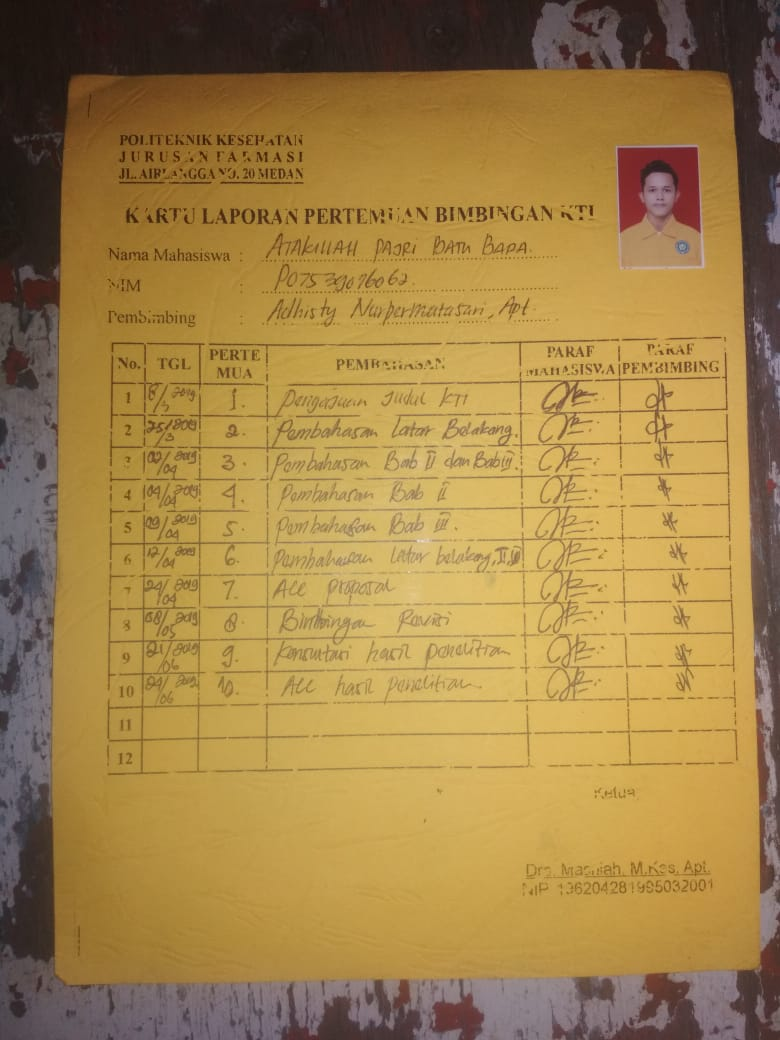 POLITEKNIK KESEHATAN
JURUSAN FARMASI
JL. AIRLANGGA NO. 20 MEDAN
KARTU LAPORAN PERTEMUAN BIMBINGAN KTI
Nama Mahasiswa : ATAKILLAH PAJRI BATU BARA
NIM : P07539016062
Pembimbing : Adhisty Nurpermatasari, Apt.
No. TGL PERTE MUA PEMBAHASAN PARAF MAHASISWA PARAF PEMBIMBING
1 8/3 2019 1. Pengajuan Judul KTI
2 25/3 2019 2. Pembahasan Latar Belakang.
3 02/04 2019 3. Pembahasan Bab II dan Bab III.
4 04/04 2019 4. Pembahasan Bab II
5 09/04 2019 5. Pembahasan Bab III.
6 12/04 2019 6. Pembahasan latar belakang, II, III
7 24/04 2019 7. Acc proposal
8 08/05 2019 8. Bimbingan Revisi
9 21/06 2019 9. Konsultasi hasil penelitian
10 24/06 10. Acc hasil penelitian.
11
12
Ketua,
Dra. Masniah, M.Kes, Apt.
NIP. 196204281995032001